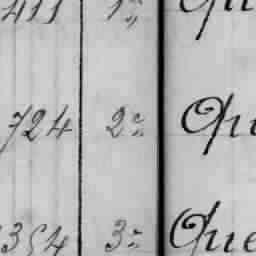 411 1º Qu
724 2º Qu
354 3º Que